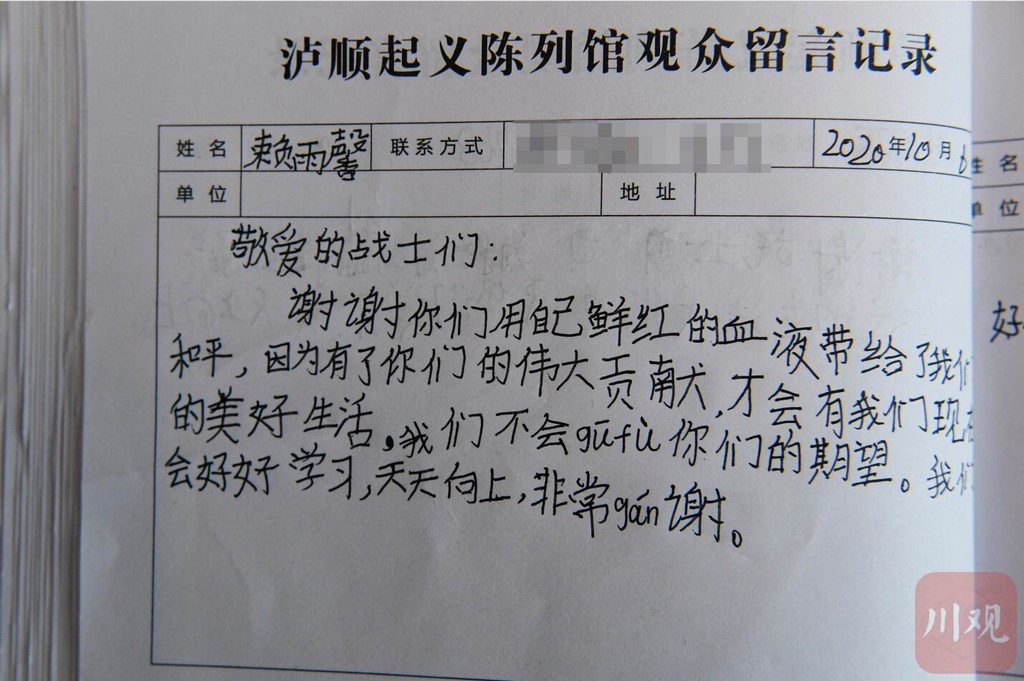 泸顺起义陈列馆观众留言记录
姓名 赖雨馨 联系方式 2020年10月6
单位 地址
敬爱的战士们:
谢谢你们用自己鲜红的血液带给了我们
和平,因为有了你们的伟大贡献,才会有我们现在
的美好生活。我们不会gūfù你们的期望。我们
会好好学习,天天向上,非常gán谢。
姓名
单位
好
川观